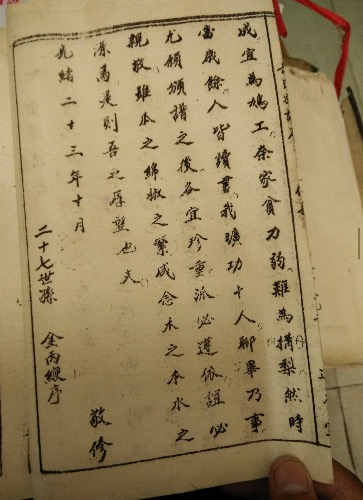 成宜為鳩工柰家貧力弱難為構梨然時
歲餘人皆讀書哉曠功十人聊畢乃事
尤領頒譜之後各宜珍重派必遵依諱必
親敬雖瓜之綿椒之繁咸念木之本水之
源焉是則吾之厚望也夫
光緒二十三年十月
二十七世孫 金丙 序
敬修